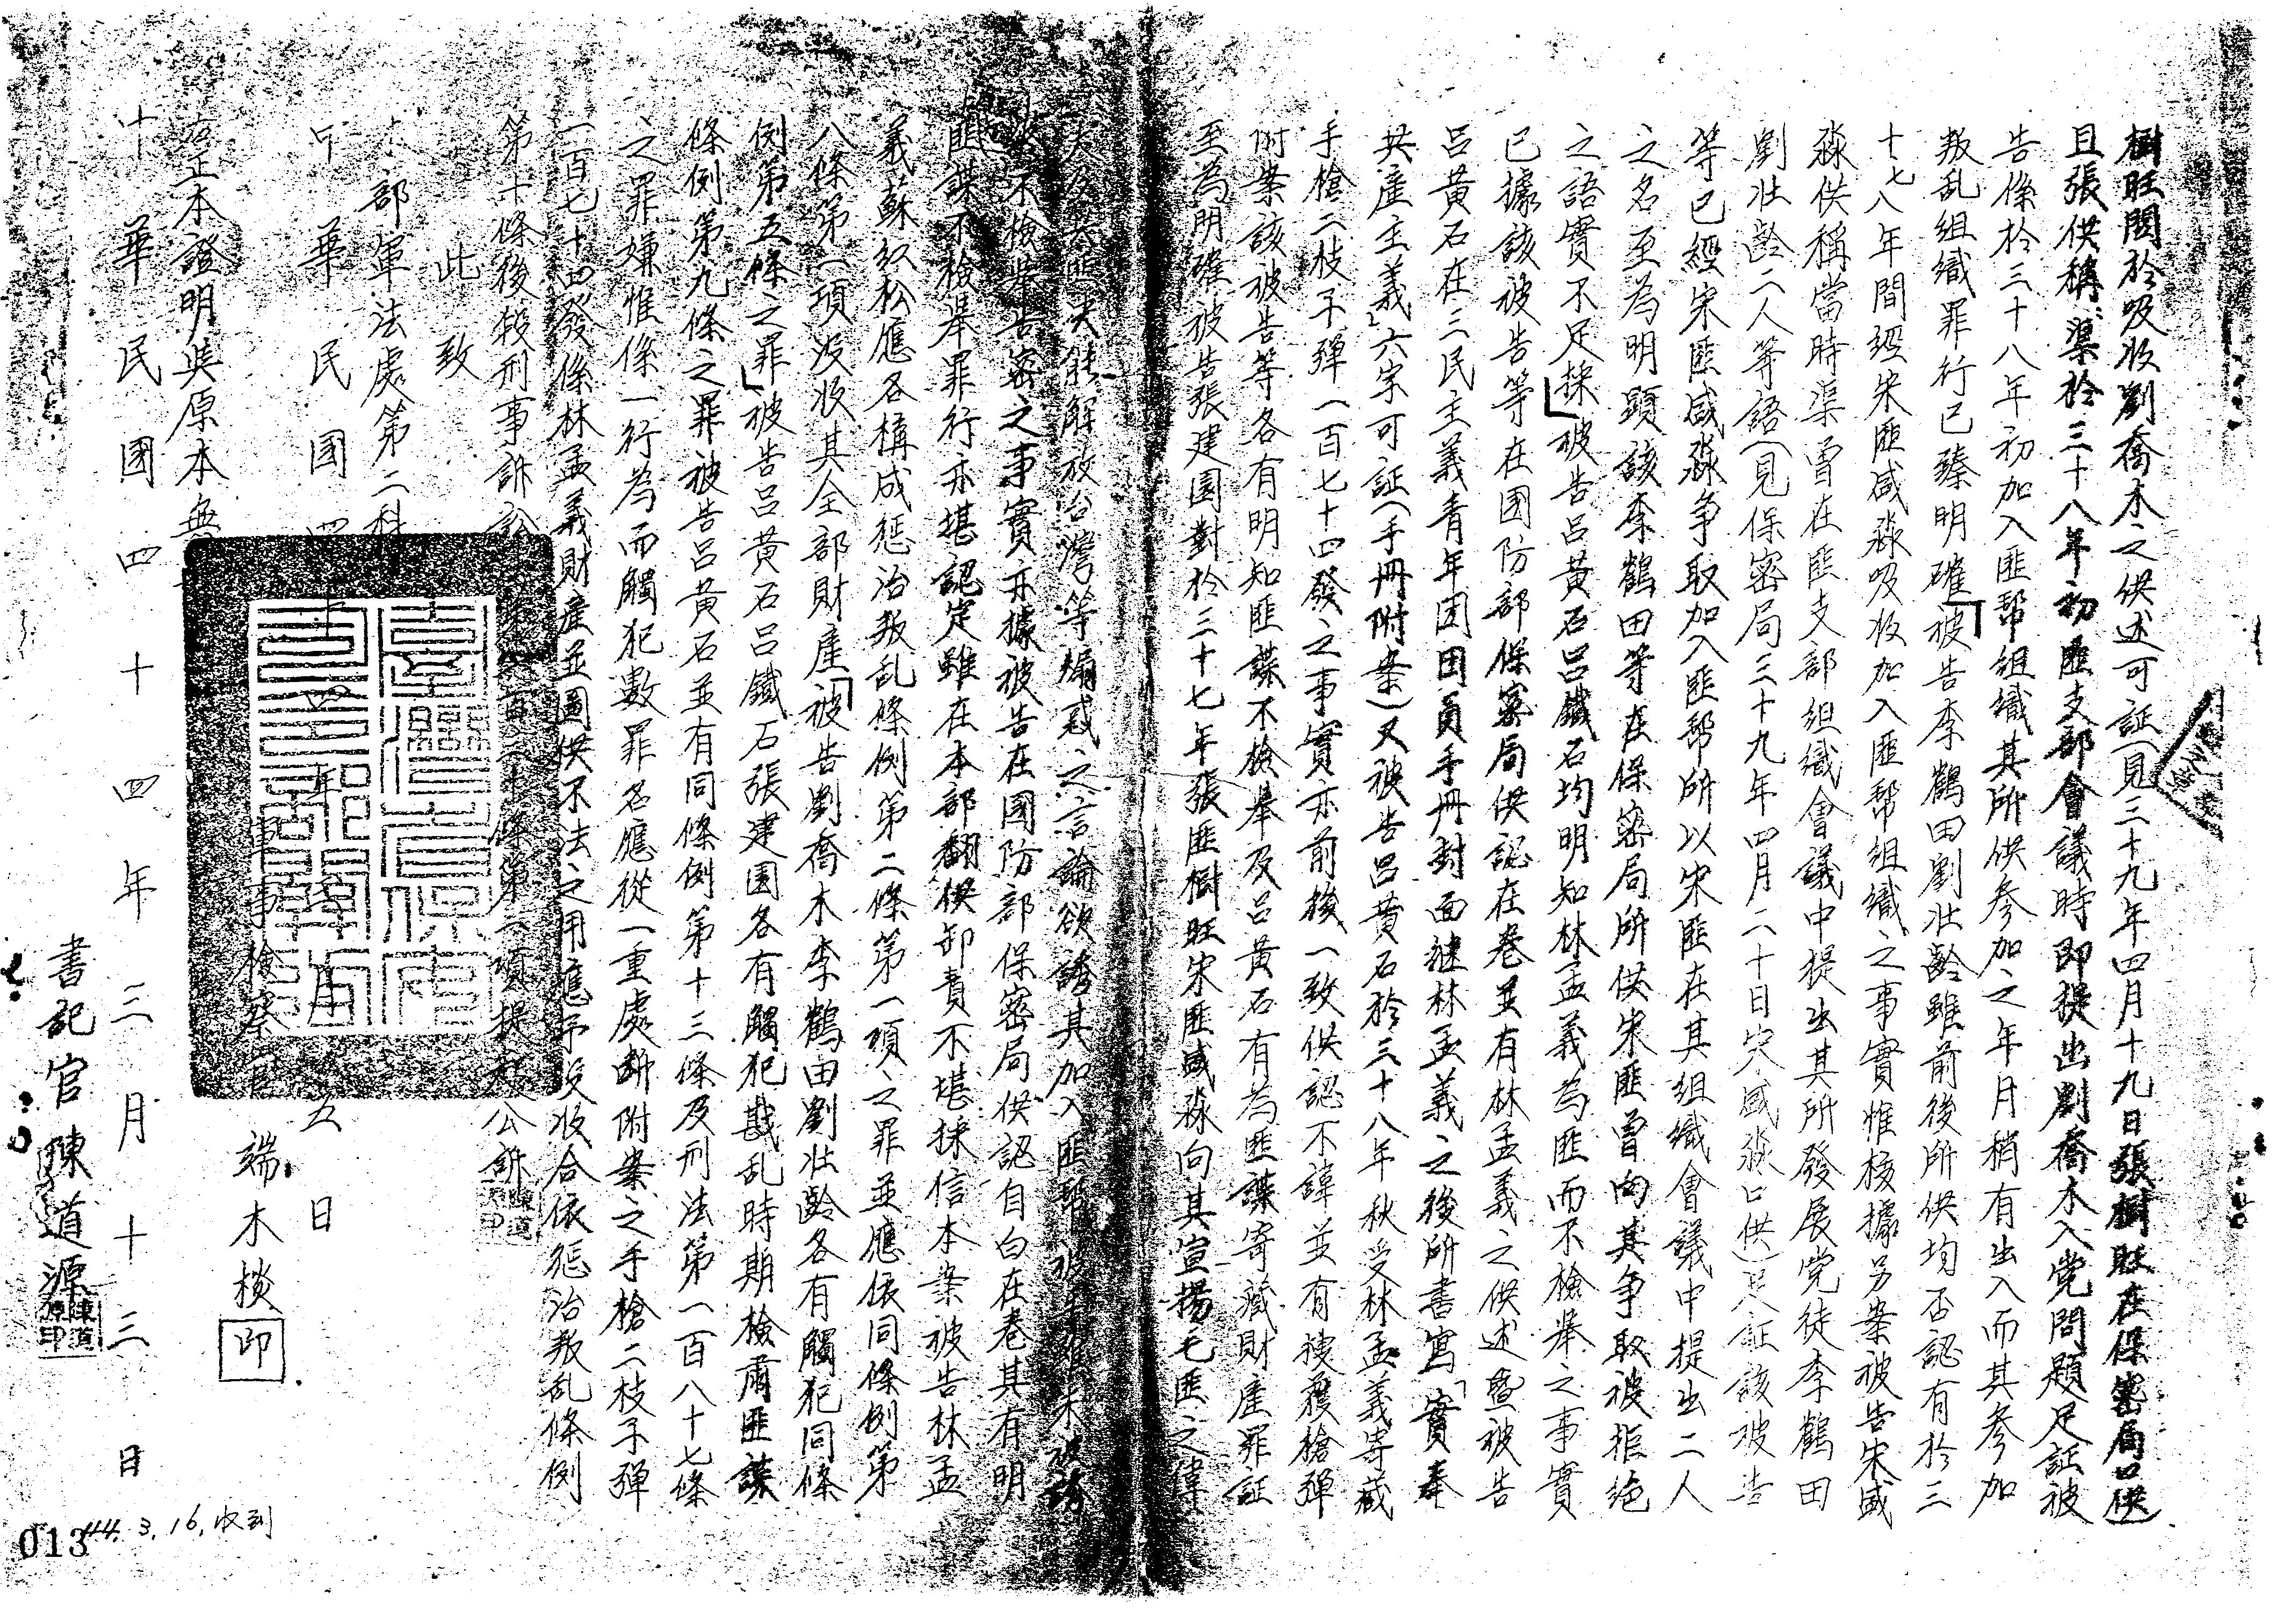 樹旺関於吸收劉喬木之供述可証（見三十九年四月十九日張樹旺在保密局口供）
且張供稱渠於三十八年初匪支部會議時即提出劉喬木入党問題足証被
告係於三十八年初加入匪帮組織其所供參加之年月稍有出入而其參加
叛乱組織罪行已臻明確「被告李鶴田劉壯齡雖前後所供均否認有於三
十七八年間經宋匪盛淼吸收加入匪帮組織之事實惟核據另案被告宋盛
淼供稱當時渠曾在匪支部組織會議中提出其所發展党徒李鶴田
劉壯齡二人等語（見保密局三十九年四月二十日宋盛淼口供）足証該被告
等已經宋匪盛淼争取加入匪帮所以宋匪在其組織會議中提出二人
之名至為明顕該李鶴田等在保密局所供宋匪曾向其争取被拒絶
之語實不足採」被告呂黃石呂鐵石均明知林孟義為匪而不檢舉之事實
已據該被告等在國防部保密局供認在卷並有林孟義之供述暨被告
呂黃石在三民主義青年团团員手冊封面継林孟義之後所書寫「實奉
共產主義」六字可証（手冊附案）又被告呂黃石於三十八年秋受林孟義寄藏
手槍二枝子彈一百七十四發之事實亦前後一致供認不諱並有獲槍彈
附案該被告等各有明知匪諜不檢舉及呂黃石有為匪諜寄藏財產罪証
至為明確被告張建園對於三十七年張匪樹旺宋匪盛淼向其宣揚毛匪之偉
大及共匪決能解放台灣等煽惑之言論欲誘其加入匪帮被告雖未被誘
惑不檢舉告密之事實亦據被告在國防部保密局供認自白在卷其有明
匪諜不檢舉罪行亦堪認定雖在本部翻供卸責不堪採信本案被告林孟
義蘇紅松應各構成惩治叛乱條例第二條第一項之罪並應依同條例第
八條第一項沒收其全部財產「被告劉喬木李鶴田劉壯齡各有觸犯同條
例第五條之罪」被告呂黃石呂鐵石張建園各有觸犯戡乱時期檢肅匪諜
條例第九條之罪被告呂黃石並有同條例第十三條及刑法第一百八十七條
之罪嫌惟係一行為而觸犯數罪名應從一重處断附案之手槍二枝子彈
一百七十四發係林孟義財產並圖供不法之用應予沒收合依惩治叛乱條例
第十條後段刑事訴訟條第一項提起公訴
此致
本部軍法處第二科
中華民國四十四年月五日
軍事檢察官端木棪印
本證明與原本無
中華民國四十四年三月十三日
書記官陳道源
44.3.16.收到
013